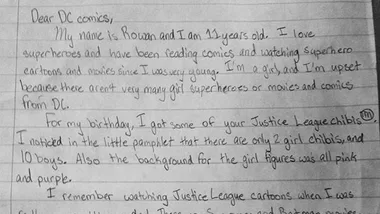 Dear DC comics,
My name is Rowan and I am 11 years old. I love
superheroes and have been reading comics and watching superhero
cartoons and movies since I was very young. I'm a girl, and I'm upset
because there aren't very many girl superheroes or movies and comics
from DC.
For my birthday, I got some of your Justice League chibis™.
I noticed in the little pamphlet that there are only 2 girl chibis, and
10 boys. Also the background for the girl figures was all pink
and purple.
I remember watching Justice League cartoons when I was